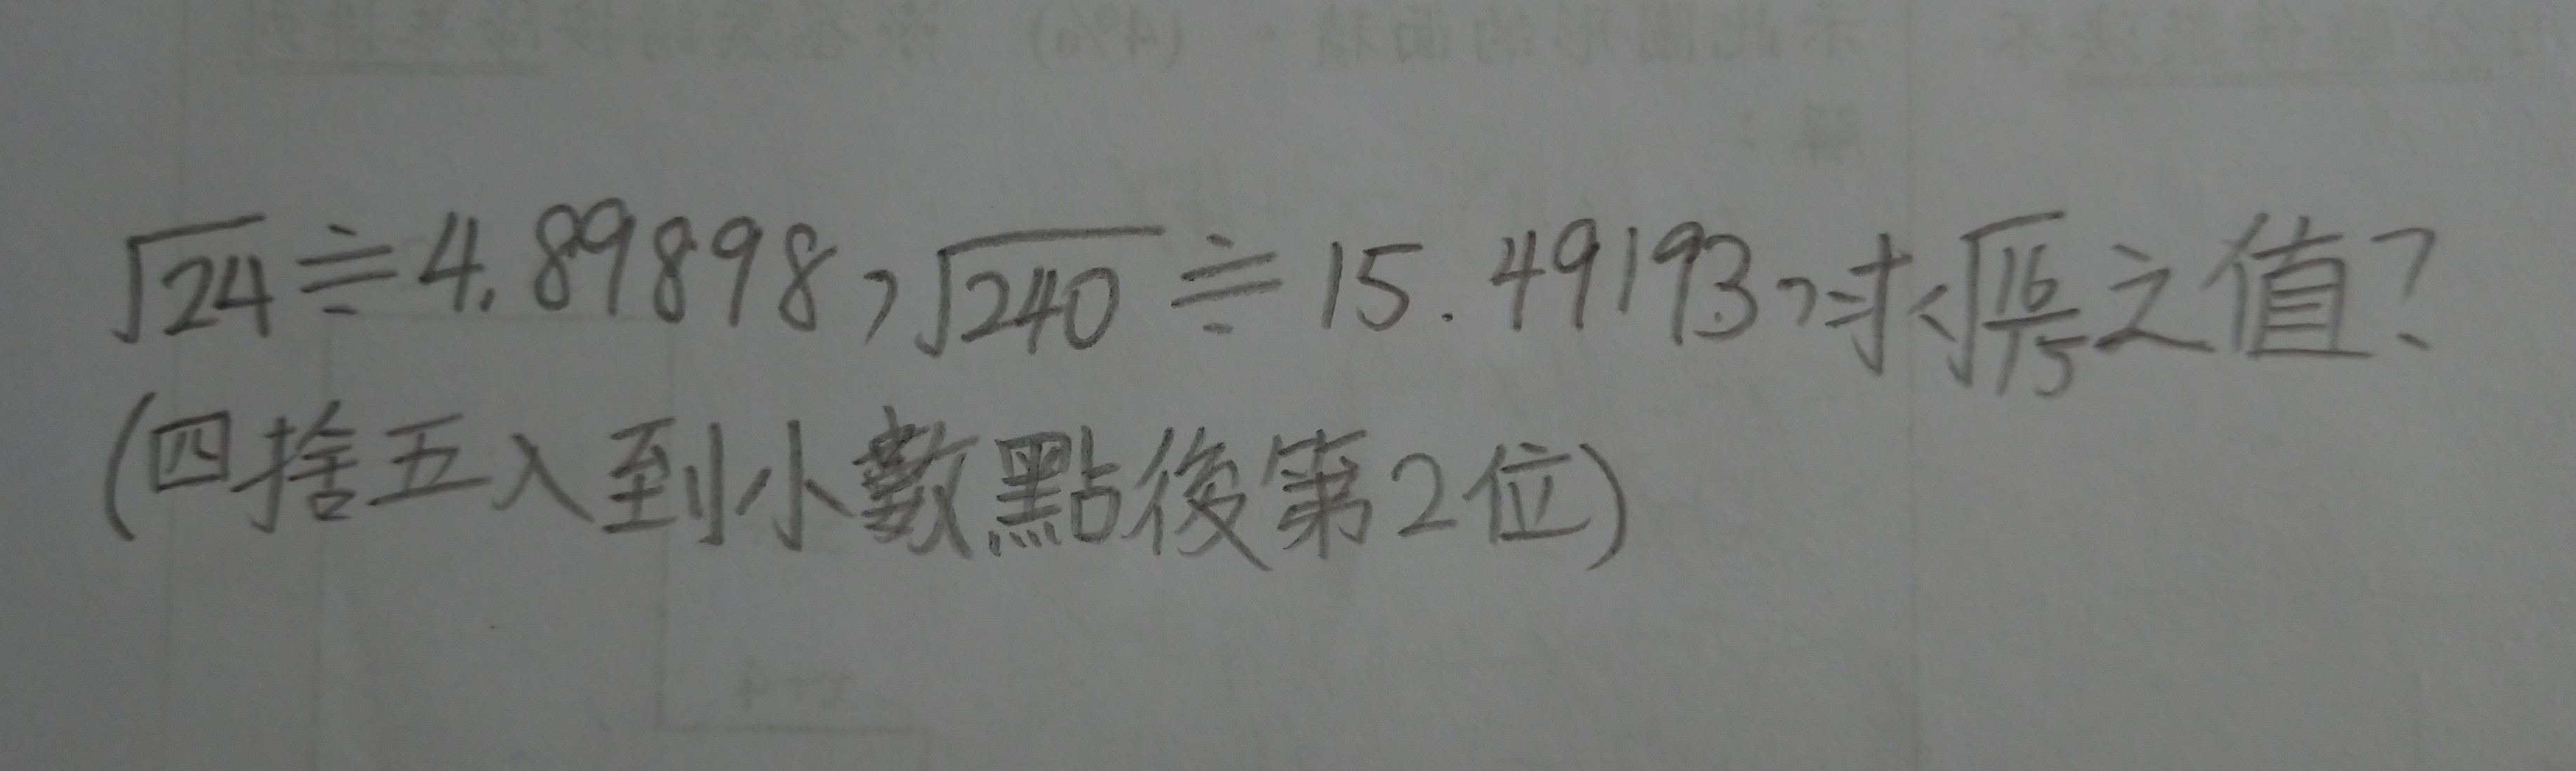 √24≒4.89898，√240≒15.49193，求√(16/15)之值？
(四捨五入到小數點後第2位)